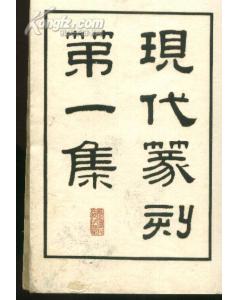 現代篆刻
第一集